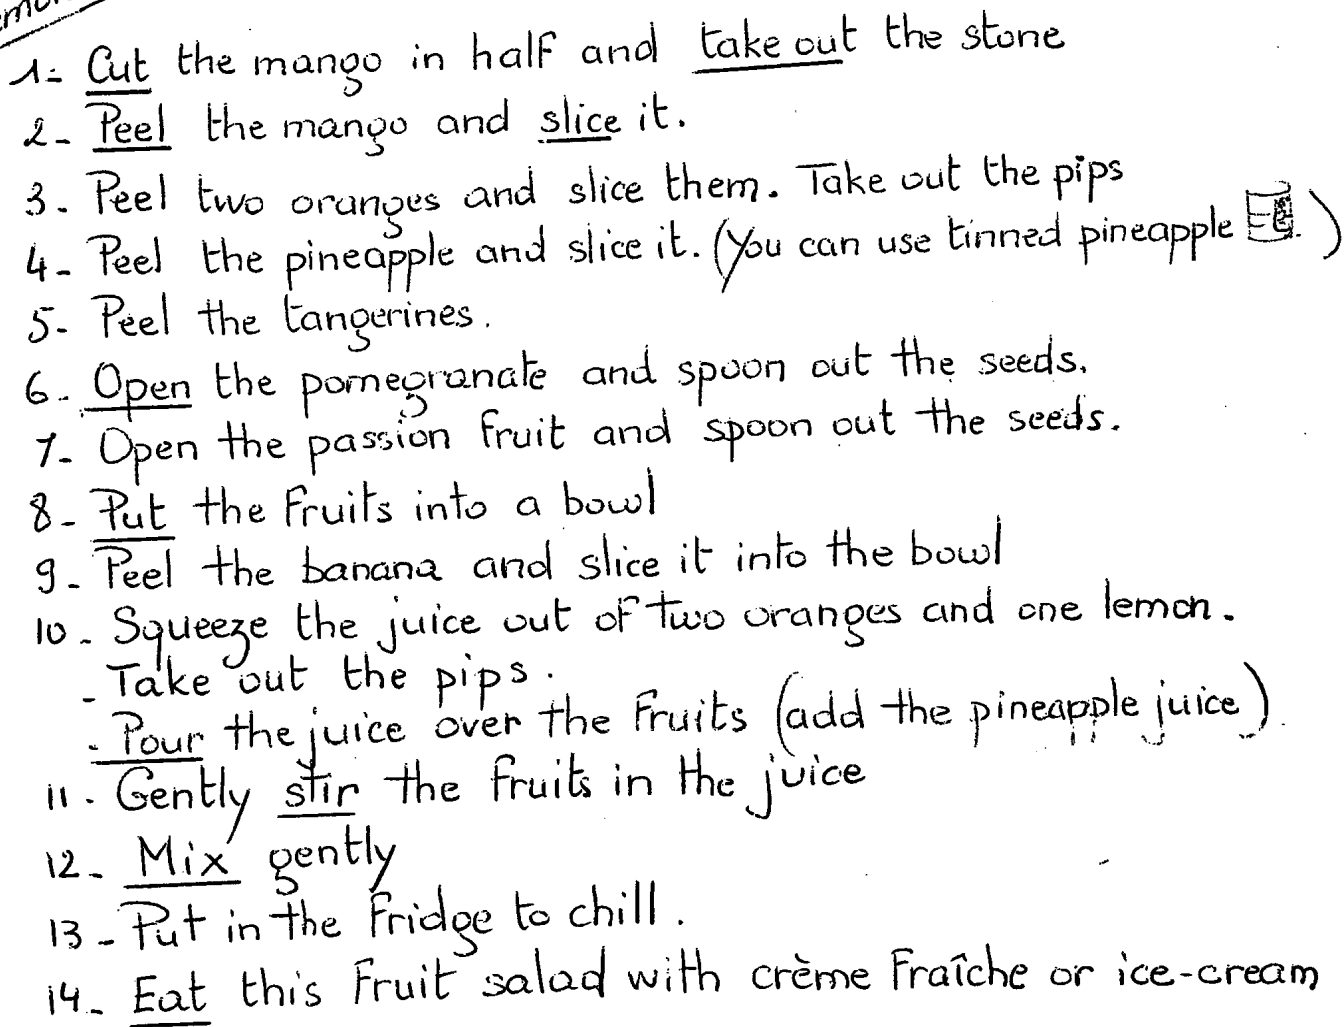 1- Cut the mango in half and take out the stone
2- Peel the mango and slice it.
3- Peel two oranges and slice them. Take out the pips
4- Peel the pineapple and slice it. (You can use tinned pineapple .)
5- Peel the tangerines.
6- Open the pomegranate and spoon out the seeds.
7- Open the passion fruit and spoon out the seeds.
8- Put the fruits into a bowl
9- Peel the banana and slice it into the bowl
10- Squeeze the juice out of two oranges and one lemon.
- Take out the pips.
- Pour the juice over the fruits (add the pineapple juice).
11- Gently stir the fruits in the juice
12- Mix gently
13- Put in the fridge to chill.
14- Eat this fruit salad with crème fraîche or ice-cream